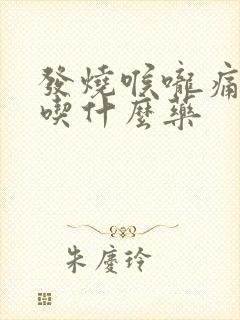 發燒喉嚨痛
喫什麼藥
朱慶玲